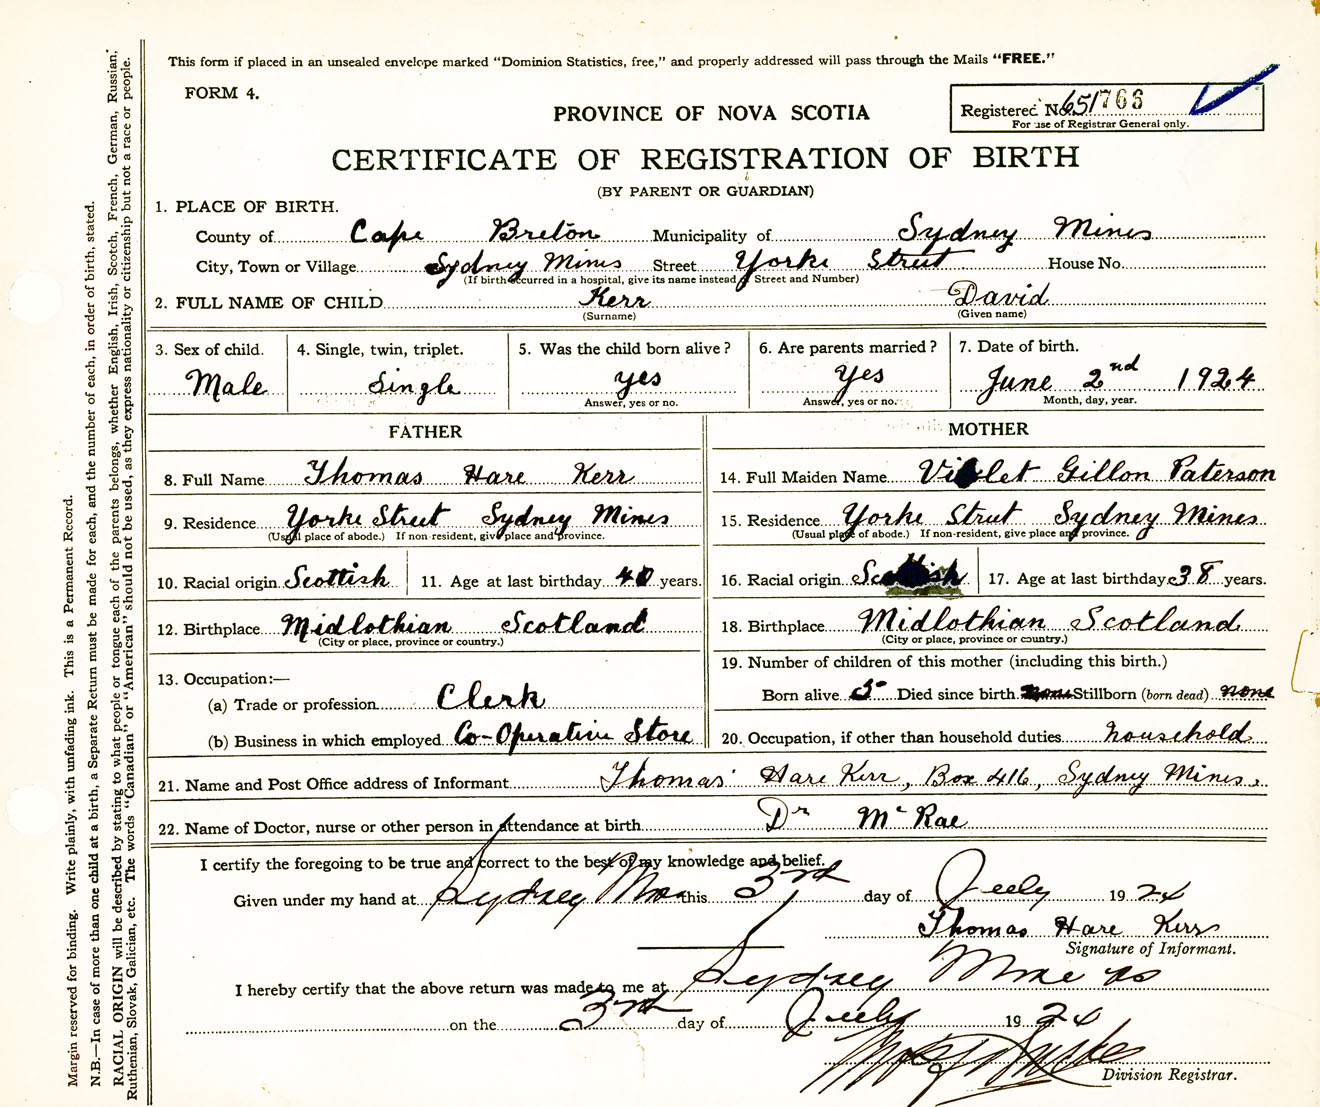 This form if placed in an unsealed envelope marked "Dominion Statistics, free," and properly addressed will pass through the Mails "FREE."
FORM 4.
PROVINCE OF NOVA SCOTIA
Registered No. 651766
For use of Registrar General only.
CERTIFICATE OF REGISTRATION OF BIRTH
(BY PARENT OR GUARDIAN)
1. PLACE OF BIRTH.
County of Cape Breton Municipality of Sydney Mines
City, Town or Village Sydney Mines Street Yorke Street House No.
(If birth occurred in a hospital, give its name instead of Street and Number)
2. FULL NAME OF CHILD Kerr David
(Surname) (Given name)
3. Sex of child. 4. Single, twin, triplet. 5. Was the child born alive? 6. Are parents married? 7. Date of birth.
Male Single yes Yes June 2nd 1924
Answer, yes or no. Answer, yes or no. Month, day, year.
FATHER MOTHER
8. Full Name Thomas Hare Kerr 14. Full Maiden Name Violet Gillon Paterson
9. Residence Yorke Street Sydney Mines 15. Residence Yorke Street Sydney Mines
(Usual place of abode.) If non-resident, give place and province. (Usual place of abode.) If non-resident, give place and province.
10. Racial origin Scottish 11. Age at last birthday 40 years. 16. Racial origin Scottish 17. Age at last birthday 38 years.
12. Birthplace Midlothian Scotland 18. Birthplace Midlothian Scotland
(City or place, province or country.) (City or place, province or country.)
13. Occupation:— 19. Number of children of this mother (including this birth.)
(a) Trade or profession Clerk Born alive 5 Died since birth none Stillborn (born dead) none
(b) Business in which employed Co-Operative Store 20. Occupation, if other than household duties household
21. Name and Post Office address of Informant Thomas Hare Kerr, Box 416, Sydney Mines.
22. Name of Doctor, nurse or other person in attendance at birth Dr McRae
I certify the foregoing to be true and correct to the best of my knowledge and belief.
Given under my hand at Sydney Mines this 3rd day of July 1924
Thomas Hare Kerr
Signature of Informant.
I hereby certify that the above return was made to me at Sydney Mines
on the 3rd day of July 1924
Division Registrar.
Margin reserved for binding. Write plainly, with unfading ink. This is a Permanent Record.
N.B.—In case of more than one child at a birth, a Separate Return must be made for each, and the number of each, in order of birth, stated.
RACIAL ORIGIN will be described by stating to what people or tongue each of the parents belongs, whether English, Irish, Scotch, French, German, Russian,
Ruthenian, Slovak, Galician, etc. The words "Canadian" or "American" should not be used, as they express nationality or citizenship but not a race or people.